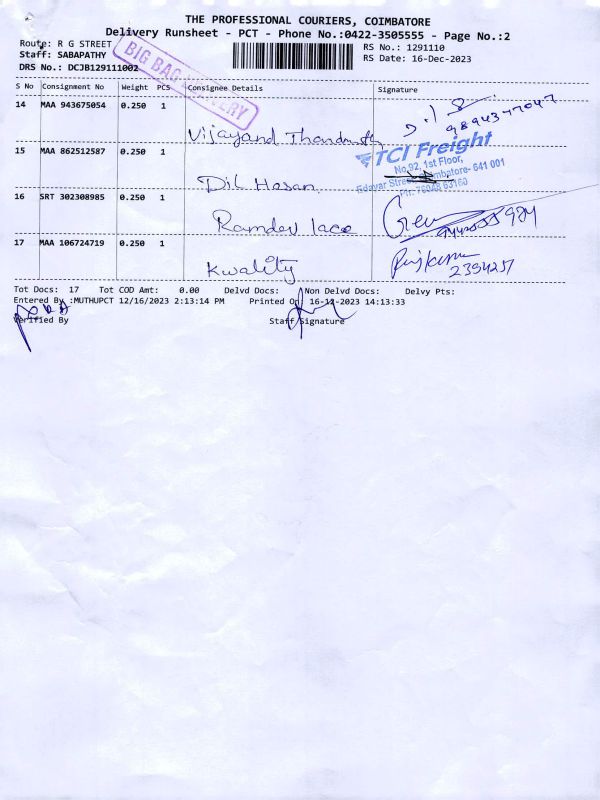 THE PROFESSIONAL COURIERS, COIMBATORE
Delivery Runsheet - PCT - Phone No.:0422-3505555 - Page No.:2
Route: R G STREET
Staff: SABAPATHY
DRS No.: DCJB129111002
BIG BAG DELIVERY
RS No.: 1291110
RS Date: 16-Dec-2023
S No Consignment No Weight PCS Consignee Details Signature
14 MAA 943675054 0.250 1
Vijayand
15 MAA 862512587 0.250 1
Dil Hasan
TCI Freight
No.92, 1st Floor,
Edayar Street, Coimbatore- 641 001
16 SRT 302308985 0.250 1
Ramdev lace
17 MAA 106724719 0.250 1
Kwality
Rajkumar
2394257
Tot Docs: 17 Tot COD Amt: 0.00 Delvd Docs: Non Delvd Docs: Delvy Pts:
Entered By :MUTHUPCT 12/16/2023 2:13:14 PM Printed On 16-12-2023 14:13:33
Verified By Staff Signature